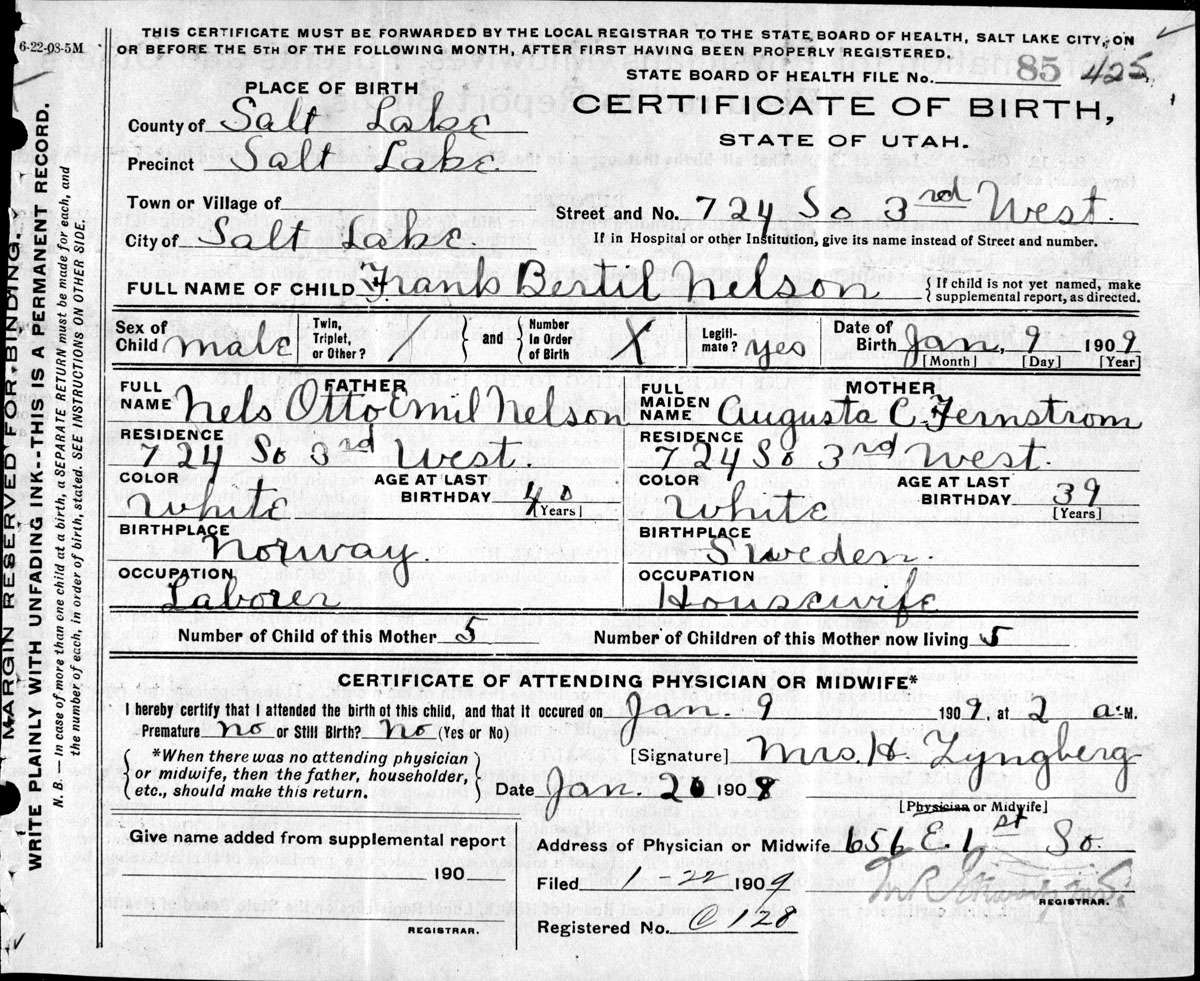 6-22-08-5M
THIS CERTIFICATE MUST BE FORWARDED BY THE LOCAL REGISTRAR TO THE STATE BOARD OF HEALTH, SALT LAKE CITY, ON
OR BEFORE THE 5TH OF THE FOLLOWING MONTH, AFTER FIRST HAVING BEEN PROPERLY REGISTERED.
STATE BOARD OF HEALTH FILE No. 85 425
PLACE OF BIRTH
CERTIFICATE OF BIRTH,
STATE OF UTAH.
County of Salt Lake
Precinct Salt Lake
Town or Village of
Street and No. 724 So 3rd West.
City of Salt Lake.
If in Hospital or other Institution, give its name instead of Street and number.
FULL NAME OF CHILD Frank Bertil Nelson
{ If child is not yet named, make
supplemental report, as directed.
Sex of Child male Twin, Triplet, or Other? / } and { Number In Order of Birth X Legiti-mate? yes Date of Birth Jan. 9 1909
[Month] [Day] [Year]
FATHER
FULL NAME Nels Otto Emil Nelson
RESIDENCE
724 So 3rd West.
COLOR White AGE AT LAST BIRTHDAY 40 [Years]
BIRTHPLACE
Norway.
OCCUPATION
Laborer
MOTHER
FULL MAIDEN NAME Augusta C. Fernstrom
RESIDENCE
724 So 3rd West.
COLOR White AGE AT LAST BIRTHDAY 39 [Years]
BIRTHPLACE
Sweden.
OCCUPATION
Housewife
Number of Child of this Mother 5 Number of Children of this Mother now living 5
CERTIFICATE OF ATTENDING PHYSICIAN OR MIDWIFE*
I hereby certify that I attended the birth of this child, and that it occured on Jan. 9 1909, at 2 a.M.
Premature no or Still Birth? No (Yes or No)
{ *When there was no attending physician
or midwife, then the father, householder,
etc., should make this return. }
[Signature] Mrs. H. Lyngberg
Date Jan. 20 1908
[Physician or Midwife]
Give name added from supplemental report
190
REGISTRAR.
Address of Physician or Midwife 656 E. 1st So.
Filed 1-22 1909
REGISTRAR.
Registered No. C 128
MARGIN RESERVED FOR BINDING.
WRITE PLAINLY WITH UNFADING INK--THIS IS A PERMANENT RECORD.
N. B. — In case of more than one child at a birth, a SEPARATE RETURN must be made for each, and
the number of each, in order of birth, stated. SEE INSTRUCTIONS ON OTHER SIDE.